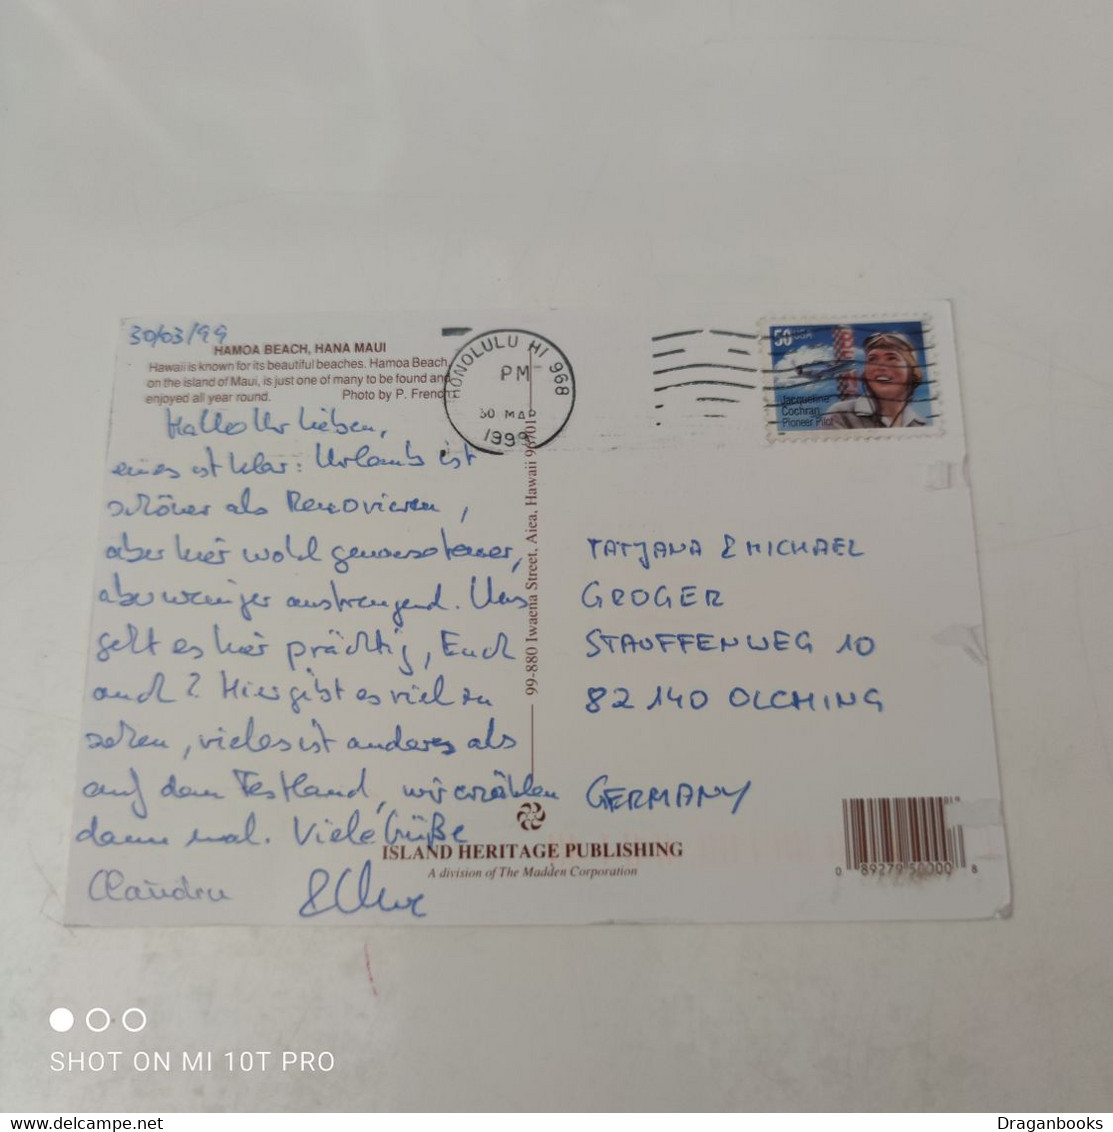 30/03/99
HAMOA BEACH, HANA MAUI
Hawaii is known for its beautiful beaches. Hamoa Beach,
on the island of Maui, is just one of many to be found and
enjoyed all year round. Photo by P. French
Hallo Ihr Lieben,
eines ist klar: Urlaub ist
schöner als Renovieren,
aber hier wohl genauso teuer,
aber weniger anstrengend. Uns
geht es hier prächtig, Euch
auch? Hier gibt es viel zu
sehen, vieles ist anders als
auf dem Festland, wir erzählen
dann mal. Viele Grüße
Claudia &
HONOLULU HI 968
PM
30 MAR
1999
50 USA
Jacqueline
Cochran
Pioneer Pilot
99-880 Iwaena Street, Aiea, Hawaii 96701
TATJANA & MICHAEL
GROGER
STAUFFENWEG 10
82140 OLCHING
GERMANY
ISLAND HERITAGE PUBLISHING
A division of The Madden Corporation
0 89279 50000 8
SHOT ON MI 10T PRO
Draganbooks